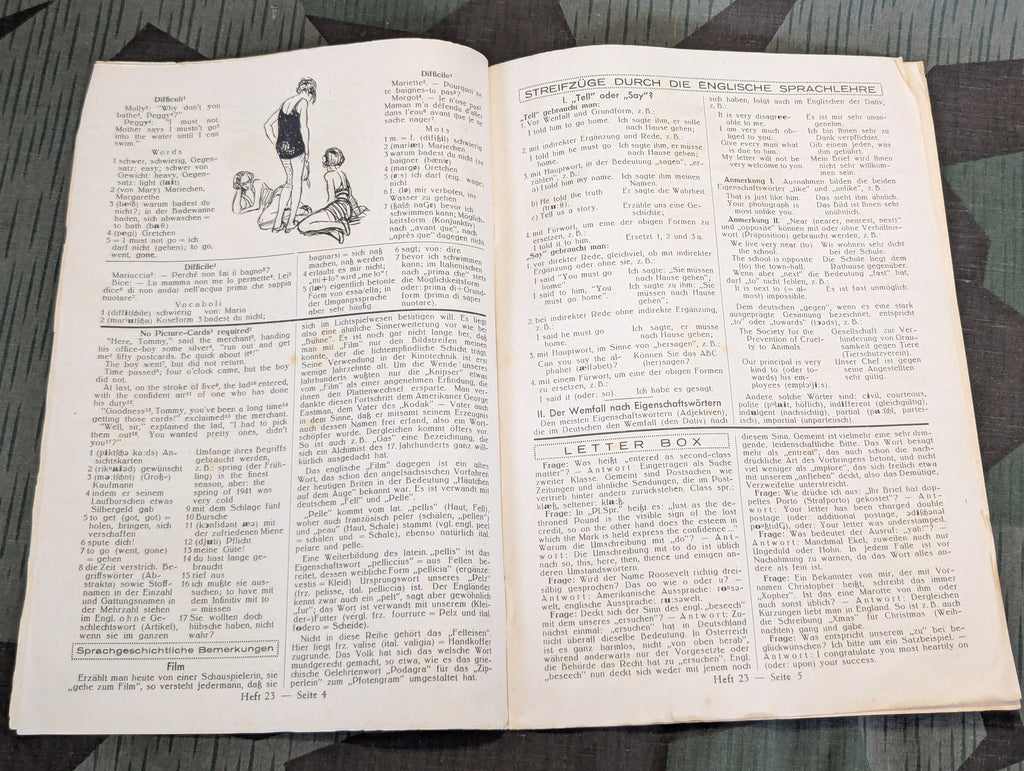 Difficult¹
Molly²: "Why don't you
bathe³, Peggy⁴?"
Peggy⁴: "I must not.
Mother says I mustn't go⁵
into the water until I can
swim."
Words
1 schwer, schwierig, Gegen-
satz: easy; schwer von
Gewicht: heavy, Gegen-
satz: light
2 (von Mary) Mariechen,
Margarethe
3 warum badest du
nicht?; in der Badewanne
baden, sich abwaschen =
to bath
4 Gretchen
5 = I must not go = ich
darf nicht (gehen); to go,
went, gone.
Difficile¹
Mariette². — Pourquoi ne
te baignes-tu pas³?
Margot⁴. — Je n'ose pas⁵.
Maman m'a défendu d'aller
dans l'eau⁶ avant que je
sache nager⁷.
Mots
1 m. = f. schwierig
2 Mariechen
3 warum badest du nicht (se
baigner)
4 Gretchen
5 ich darf (eig.: wage)
nicht
6 f. mir verboten, ins
Wasser zu gehen
7 bevor ich
schwimmen kann; Möglich-
keitsform (Konjunktiv)
nach „avant que", nach
„après que" dagegen nicht.
Difficile¹
Mariuccia²: — Perchè non fai il bagno³?
Bice: — La mamma non me lo permette⁴. Lei⁵
dice⁶ di non andar nell'acqua prima che sappia
nuotare⁷.
Vocaboli
1 schwierig von: Maria
2 Koseform 3 badest du nicht;
bagnarsi = sich naß
machen, naß werden
4 erlaubt es mir nicht;
„mi+lo" wird „me lo"
5 eigentlich betonte
Form von essa/ella; in
der Umgangssprache
aber sehr häufig
6 sagt; von: dire
7 bevor ich schwimmen
kann; im Italienischen
nach „prima che" stets
die Möglichkeitsform
oder: prima di + Grund-
form (prima di saper
nuotare).
No Picture-Cards¹ required²
"Here, Tommy," said the merchant³, handing
his office-boy some silver⁴, "run out and get
me⁵ fifty postcards. Be quick about it⁶!"
The boy went⁷, but did not return.
Time passed⁸; four o'clock came, but the boy
did not.
At last, on the stroke of five⁹, the lad¹⁰ entered,
with the confident air¹¹ of one who has done
his duty¹².
"Goodness¹³, Tommy, you've been a long time¹⁴
getting those cards!" exclaimed¹⁵ the merchant.
"Well, sir," explained the lad, "I had to pick
them out¹⁶. You wanted pretty ones, didn't
you¹⁷?"
1 Ansichtskarten
2 gewünscht
3 (Groß-)
Kaufmann
4 indem er seinem
Laufburschen etwas
Silbergeld gab
5 to get (got, got) =
holen, bringen, sich
verschaffen
6 spute dich!
7 to go (went, gone)
= gehen
8 die Zeit verstrich. Be-
griffswörter (Ab-
strakta) sowie Stoff-
namen in der Einzahl
und Gattungsnamen in
der Mehrzahl stehen
im Engl. ohne Ge-
schlechtswort (Artikel),
wenn sie im ganzen
Umfange ihres Begriffs
gebraucht werden,
z. B.: spring (der Früh-
ling) is the finest
season, aber: the
spring of 1941 was
very cold
9 mit dem Schlage fünf
10 Bursche
11 mit
der zufriedenen Miene
12 Pflicht
13 meine Güte!
14 du hast lange ge-
braucht
15 rief aus
16 ich mußte sie aus-
suchen; to have mit
dem Infinitiv mit to
= müssen
17 Sie wollten doch
hübsche haben, nicht
wahr?
Sprachgeschichtliche Bemerkungen
Film
Erzählt man heute von einer Schauspielerin, sie
„gehe zum Film", so versteht jedermann, daß sie
sich im Lichtspielwesen betätigen will. Es liegt
also eine ähnliche Sinnerweiterung vor wie bei
„Bühne". Es ist noch gar nicht lange her, daß
man mit „Film" nur den Bildstreifen meinen
konnte, der die lichtempfindliche Schicht trägt.
Seine Verwendung in der Kinotechnik ist erst
wenige Jahrzehnte alt. Um die Wende unseres
Jahrhunderts wußten nur die „Knipser" etwas
vom „Film" als einer angenehmen Erfindung, die
ihnen den Plattenwechsel ersparte. Man ver-
dankte diesen Fortschritt dem Amerikaner George
Eastman, dem Vater des „Kodak" — Vater auch
in dem Sinne, daß er mitsamt seinem Erzeugnis
auch dessen Namen frei erfand, also ein Wort-
schöpfer wurde. Dergleichen kommt öfters vor.
So ist auch z. B. „Gas" eine Bezeichnung, die
sich ein Alchimist des 17. Jahrhunderts ganz will-
kürlich ausgedacht hat.
Das englische „Film" dagegen ist ein altes
Wort, das schon den angelsächsischen Vorfahren
der heutigen Briten in der Bedeutung „Häutchen
auf dem Auge" bekannt war. Es ist verwandt mit
deutschem „Fell" und „Pelle".
„Pelle" kommt vom lat. „pellis" (Haut, Fell),
woher auch französisch peler (schälen, „pellen")
und „peau" (Haut, Schale) stammt (vgl. engl. peel
= schälen und = Schale), ebenso natürlich ital.
pelare und pelle.
Eine Weiterbildung des latein. „pellis" ist das
Eigenschaftswort „pelliceus" = aus Fellen be-
reitet, dessen weibliche Form „pellicia" (ergänze:
vestis = Kleid) Ursprungswort unseres „Pelz"
(frz. pelisse, ital. pelliccia) ist. Der Engländer
kennt zwar auch ein „pelt", sagt aber gewöhnlich
„fur"; das Wort ist verwandt mit unserem (Klei-
der-)Futter (vergl. frz. fourrure = Pelz und ital.
fodero = Scheide).
Nicht in diese Reihe gehört das „Felleisen".
Hier liegt frz. valise (ital. valigia) = Handkoffer
zugrunde. Das Volk hat sich das welsche Wort
mundgerecht gemacht, so etwa, wie es das grie-
chische Gelehrtenwort „Podagra" für das „Zip-
perlein" zum „Pfotengram" umgestaltet hat.
Heft 23 — Seite 4
STREIFZÜGE DURCH DIE ENGLISCHE SPRACHLEHRE
I. „Tell" oder „Say"?
„Tell" gebraucht man:
1. vor Wenfall und Grundform, z. B.:
I told him to go home. Ich sagte ihm, er solle
nach Hause gehen;
2. mit indirekter Ergänzung und Rede, z. B.:
I told him he must go Ich sagte ihm, er müsse
home. nach Hause gehen;
3. mit Hauptwort, in der Bedeutung „sagen", „er-
zählen", z. B.:
a) I told him my name. Ich sagte ihm meinen
Namen.
b) He told the truth Er sagte die Wahrheit.
c) Tell us a story. Erzähle uns eine Ge-
schichte;
4. mit Fürwort, um eine der obigen Formen zu
ersetzen, z. B.:
I told it to him. Ersetzt 1, 2 und 3 a.
„Say" gebraucht man:
1. vor direkter Rede, gleichviel, ob mit indirekter
Ergänzung oder ohne sie, z. B.:
I said "You must go Ich sagte: „Sie müssen
home". nach Hause gehen";
I said to him, "You Ich sagte zu ihm: „Sie
must go home". müssen nach Hause
gehen";
2. bei indirekter Rede ohne indirekte Ergänzung,
z. B.:
I said he must go Ich sagte, er müsse
home. nach Hause gehen;
3. mit Hauptwort, im Sinne von „hersagen", z. B.:
Can you say the al- Können Sie das ABC
phabet (hersagen)?
4. mit einem Fürwort, um eine der obigen Formen
zu ersetzen, z. B.:
I said it (oder: so). Ich habe es gesagt.
II. Der Wemfall nach Eigenschaftswörtern
Den meisten Eigenschaftswörtern (Adjektiven),
die im Deutschen den Wemfall (den Dativ) nach
sich haben, folgt auch im Englischen der Dativ,
z. B.:
It is very disagree- Es ist mir sehr unan-
able to me. genehm.
I am very much ob- Ich bin Ihnen sehr zu
liged to you. Dank verpflichtet.
Give every man what Gib einem jeden, was
is due to him. ihm gebührt.
My letter will not be Mein Brief wird Ihnen
very welcome to you. nicht sehr willkom-
men sein.
Anmerkung I. Ausnahmen bilden die beiden
Eigenschaftswörter „like" and „unlike", z. B.:
That is just like him. Das sieht ihm ähnlich.
Your photograph is Das Bild ist Ihnen sehr
most unlike you. unähnlich.
Anmerkung II. „Near (nearer, nearest, next)"
und „opposite" können mit oder ohne Verhältnis-
wort (Präposition) gebraucht werden, z. B.:
We live very near (to) Wir wohnen sehr dicht
the school. bei der Schule.
The school is opposite Die Schule liegt dem
(to) the town-hall. Rathause gegenüber.
Wenn aber „next" die Bedeutung „fast" hat,
darf „to" nicht fehlen, z. B.:
It is next to (= al- Es ist fast unmöglich.
most) impossible.
Dem deutschen „gegen", wenn es eine stark
ausgeprägte Gesinnung bezeichnet, entspricht
„to" oder „towards", z. B.:
The Society for the Gesellschaft zur Ver-
Prevention of Cruel- hinderung von Grau-
ty to Animals. samkeit gegen Tiere
(Tierschutzverein).
Our principal is very Unser Chef ist gegen
kind to (oder to- seine Angestellten
wards) his em- sehr gütig.
ployees
Andere solche Wörter sind: civil, courteous,
polite (höflich), indifferent (gleichgültig),
indulgent (nachsichtig), partial (parteiisch),
impartial (unparteiisch).
LETTER BOX
Frage: Was heißt „entered as second-class
matter"? — Antwort: Eingetragen als Sache
zweiter Klasse. Gemeint sind Postsachen wie
Zeitungen und ähnliche Sendungen, die im Post-
vertrieb hinter andern zurückstehen. Class spr.:
klaß, seltener: klaß.
Frage: In „PLSpr." heißt es: "Just as the de-
throned Pound is the visible sign of the lost
credit, so on the other hand does the esteem in
which the Mark is held express the confidence ..."
Warum die Umschreibung mit „do"? — Ant-
wort: Die Umschreibung mit to do ist üblich
nach so, this, here, then, hence und einigen an-
deren Umstandswörtern.
Frage: Wird der Name Roosevelt richtig drei-
silbig gesprochen? Das oo wie o oder u? —
Antwort: Amerikanische Aussprache:
englische Aussprache:
Frage: Deckt sich der Sinn des engl. „beseech"
mit dem unseres „ersuchen"? — Antwort: Zu-
nächst einmal: „ersuchen" hat in Deutschland
nicht überall dieselbe Bedeutung. In Österreich
ist es ganz harmlos, nicht „von oben herab",
während anderwärts nur der Vorgesetzte oder
die Behörde das Recht hat zu „ersuchen". Engl.
„beseech" nun deckt sich weder mit jenem noch
diesem Sinn. Gemeint ist vielmehr eine sehr drin-
gende, leidenschaftliche Bitte. Das Wort besagt
mehr als „entreat", das auch schon die nach-
drückliche Art des Vorbringens betont, und nicht
viel weniger als „implore", das sich freilich etwa
mit unserem „anflehen" deckt, also das Demütige,
Verzweifelte unterstreicht.
Frage: Wie drücke ich aus: „Ihr Brief hat dop-
peltes Porto (Strafporto) gekostet"? — Ant-
wort: Your letter has been charged double
postage (oder: additional postage,
oder: Your letter was understamped.
Frage: Was bedeutet der Ausruf: „yah"? —
Antwort: Manchmal Ekel, zuweilen auch nur
Ungeduld oder Hohn. In jedem Falle ist vor
Nachahmung zu warnen, da das Wort alles an-
dere als fein ist.
Frage: Ein Bekannter von mir, der mit Vor-
namen Christopher heißt, schreibt das immer
„Xopher". Ist das eine Marotte von ihm oder
auch sonst üblich? — Antwort: Dergleichen
Kürzungen liebt man in England. So ist z. B. auch
die Schreibung „Xmas" für Christmas (Weih-
nachten) gang und gäbe.
Frage: Was entspricht unserem „zu" bei be-
glückwünschen? Ich bitte um ein Satzbeispiel. —
Antwort: I congratulate you most heartily on
(oder: upon) your success.
Heft 23 — Seite 5